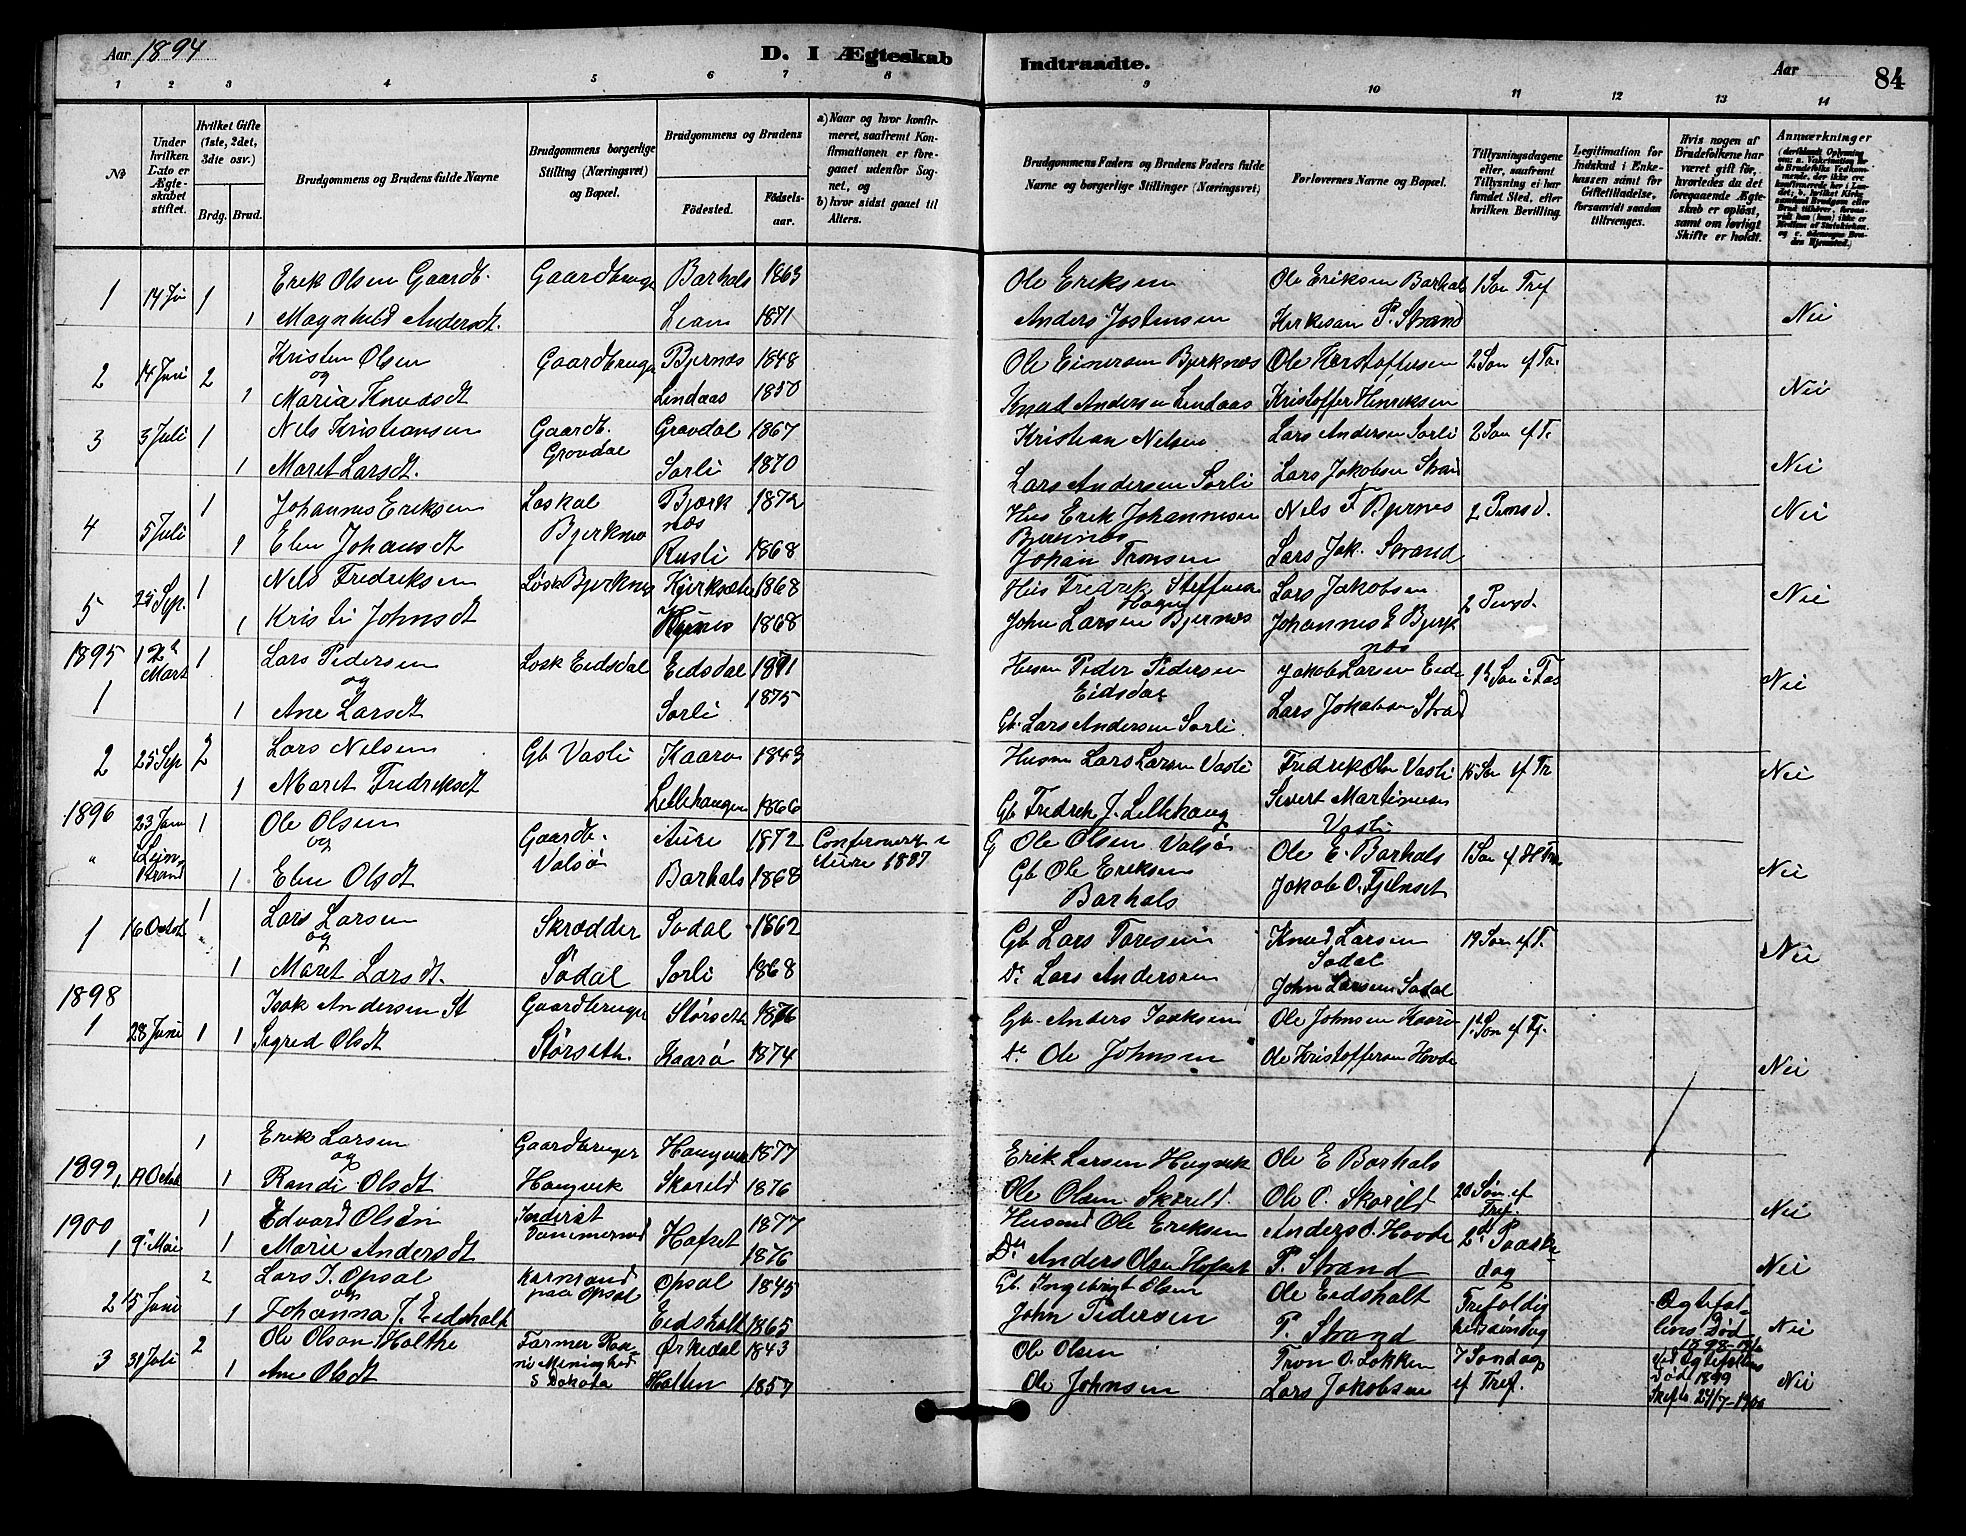 Aar 1894
D. I Ægteskab Indtraadte.
Aar
84
1 2 3 4 5 6 7 8 9 10 11 12 13 14
No
Under hvilken Dato er Ægteskabet stiftet.
Hvilket Gifte (1ste, 2det, 3die osv.)
Brdg. Brud.
Brudgommens og Brudens fulde Navne
Brudgommens borgerlige Stilling (Næringsvei) og Bopæl.
Brudgommens og Brudens
Fødested. Fødselsaar.
a) Naar og hvor konfirmeret, saafremt Konfirmationen er foregaaet udenfor Sognet, og
b) hvor sidst gaaet til Alters.
Brudgommens Faders og Brudens Faders fulde Navne og borgerlige Stillinger (Næringsvei)
Forlovernes Navne og Bopæl.
Tillysningsdagene eller, saafremt Tillysning ei har fundet Sted, efter hvilken Bevilling.
Legitimation for Indskud i Enkekassen samt for Giftetilladelse, forsaavidt saadan tiltrænges.
Hvis nogen af Brudefolkene har været gift før, hvorledes da det foregaaende Ægteskab er opløst, samt om lovligt Skifte er holdt.
Anmærkninger
1 14 Ju 1 Erik Olsen Gaardb. Gaardbruger Barhals 1863 Ole Eriksen Ole Eriksen Barhals 1 Søn Tref
1 Magnhild Andersdt. Leam 1871 Anders Jostensen Kirkesan P. Strand Nei
2 14 Juni 2 Kristen Olsen Gaardbruger Bjernæs 1848 Ole Einersen Bjerknæs Ole Kerstoffersen 2 Søn ef Ta.
og
1 Maria Knudsdt Lindaas 1850 Knud Andersen Lindaas Kristoffer Henriksen Nei
3 3 Juli 1 Nils Kristiansen Gaardb. Grovdal Grovdal 1867 Kristian Nelsen Lars Andersen Sorli 2 Søn ef T.
1 Maret Larsdt. Sorli 1870 Lars Andersen Sorli Lars Jakobsen Stran Nei
4 5 Juli 1 Johannes Eriksen Loskal Bjerknæs Bjørknæs 1872 Hus Erik Johannesen Bjernnæs Nels F Bjernes 2 Pinsd. Nei
1 Elen Johansdt Rusli 1868 Johan Tronsen Lars Jak. Strand
5 25 Sep. 1 Nels Fredriksen Løsk Bjerknes Kjerksæte 1868 Hus Fredrik Steffensen Lars Jakobsen 2 Pinsd. Nei
1 Kristi Johnsdt 1868 John Larsen Bjernæs Johannes E Bjerknæs
1895
1 12h Mart 1 Lars Pedersen Løsk Eidsdal Eidsdal 1871 Husm Peder Pedersen Eidsdal Jakob Larsen Eide 1h Søn i Fas Nei
og
1 Ane Larsdt Sorli 1875 Gb. Lars Andersen Sorli. Lars Jakobsen Strad
2 25 Sep 2 Lars Nelsen Gb Vasli Kaarøn 1843 Husm Lars Larsen Vasli Fredrik Olsn Vasli 15 Søn ef Tr Nei
1 Maret Fredriksdt Lellehaugen 1866 Gb Fredrik J. Lellehaug Sivert Martinusen Vasli
1896
" 23 Jan Leinstrand 1 Ole Olsen Gaardb. Valsø Aure 1872 Confirmert i Aure 1887 G Ole Olsen Valsø Ole E. Barhals 1 Søn ef H Tre
og
1 Elen Olsdt Barhals 1868 Gb Ole Eriksen Barhals Jakob O. Fjelnset Nei
1 16 Octob 1 Lars Larsen Skrædder Sodal 1862 Gb Lars Taresen Knud Larsen Sodal 19 Søn ef T.
og
1 Maret Larsdt. Sodal Sorli 1868 Do Lars Andersen John Larsen Sodal Nei
1898
1 28 Juni 1 Isak Andersen St Gaardbruger Størseth 1876 Gb. Anders Isaksen Ole Johnsen Kaarø 1h Søn ef Tj.
1 Sigred Olsdt Størseth. Kaarø 1874 Do Ole Johnsen Ole Kristoffersen Hovde Nei
1899, 19 Octob 1 Erik Larsen Gaardbruger Haugvek 1877 Erik Larsen Hugvik Ole E Barhals
og
1 Randi Olsdt Haugvik Skareld 1876 Ole Olsen Skareld. Ole O. Skareld 20 Søn ef Tref. Nei
1900
1 9de Mai 1 Edvard Olsen Inderist Tømmermd Hafset 1877 Husmd Ole Eriksen Anders O. Hovde 2d Paaskedag
1 Marie Andersdt 1876 Do Anders Olsen Hofset P. Strand Nei
2 15 Juni 2 Lars I. Opsal Kaarmand paa Opsal Opsal 1845 Gb. Ingebrigt Olsen Ole Eidshalt Trefoldighedssøndag
og
1 Johanna J. Eidshalt Eidshalt 1865 John Pedersen P. Strand Ægtefellens Død Nei
3 31 Juli 2 Ole Olsen Holthe Farmer S Dakota Ørkedal 1843 Ole Olsen Tron O. Løkken 7 Søndag ef Tref. Ved Ægtefellens Død 1899 Skifte 24/7-1900
1 Ane Olsdt Halten 1857 Ole Johnsen Lars Jakobsen Nei